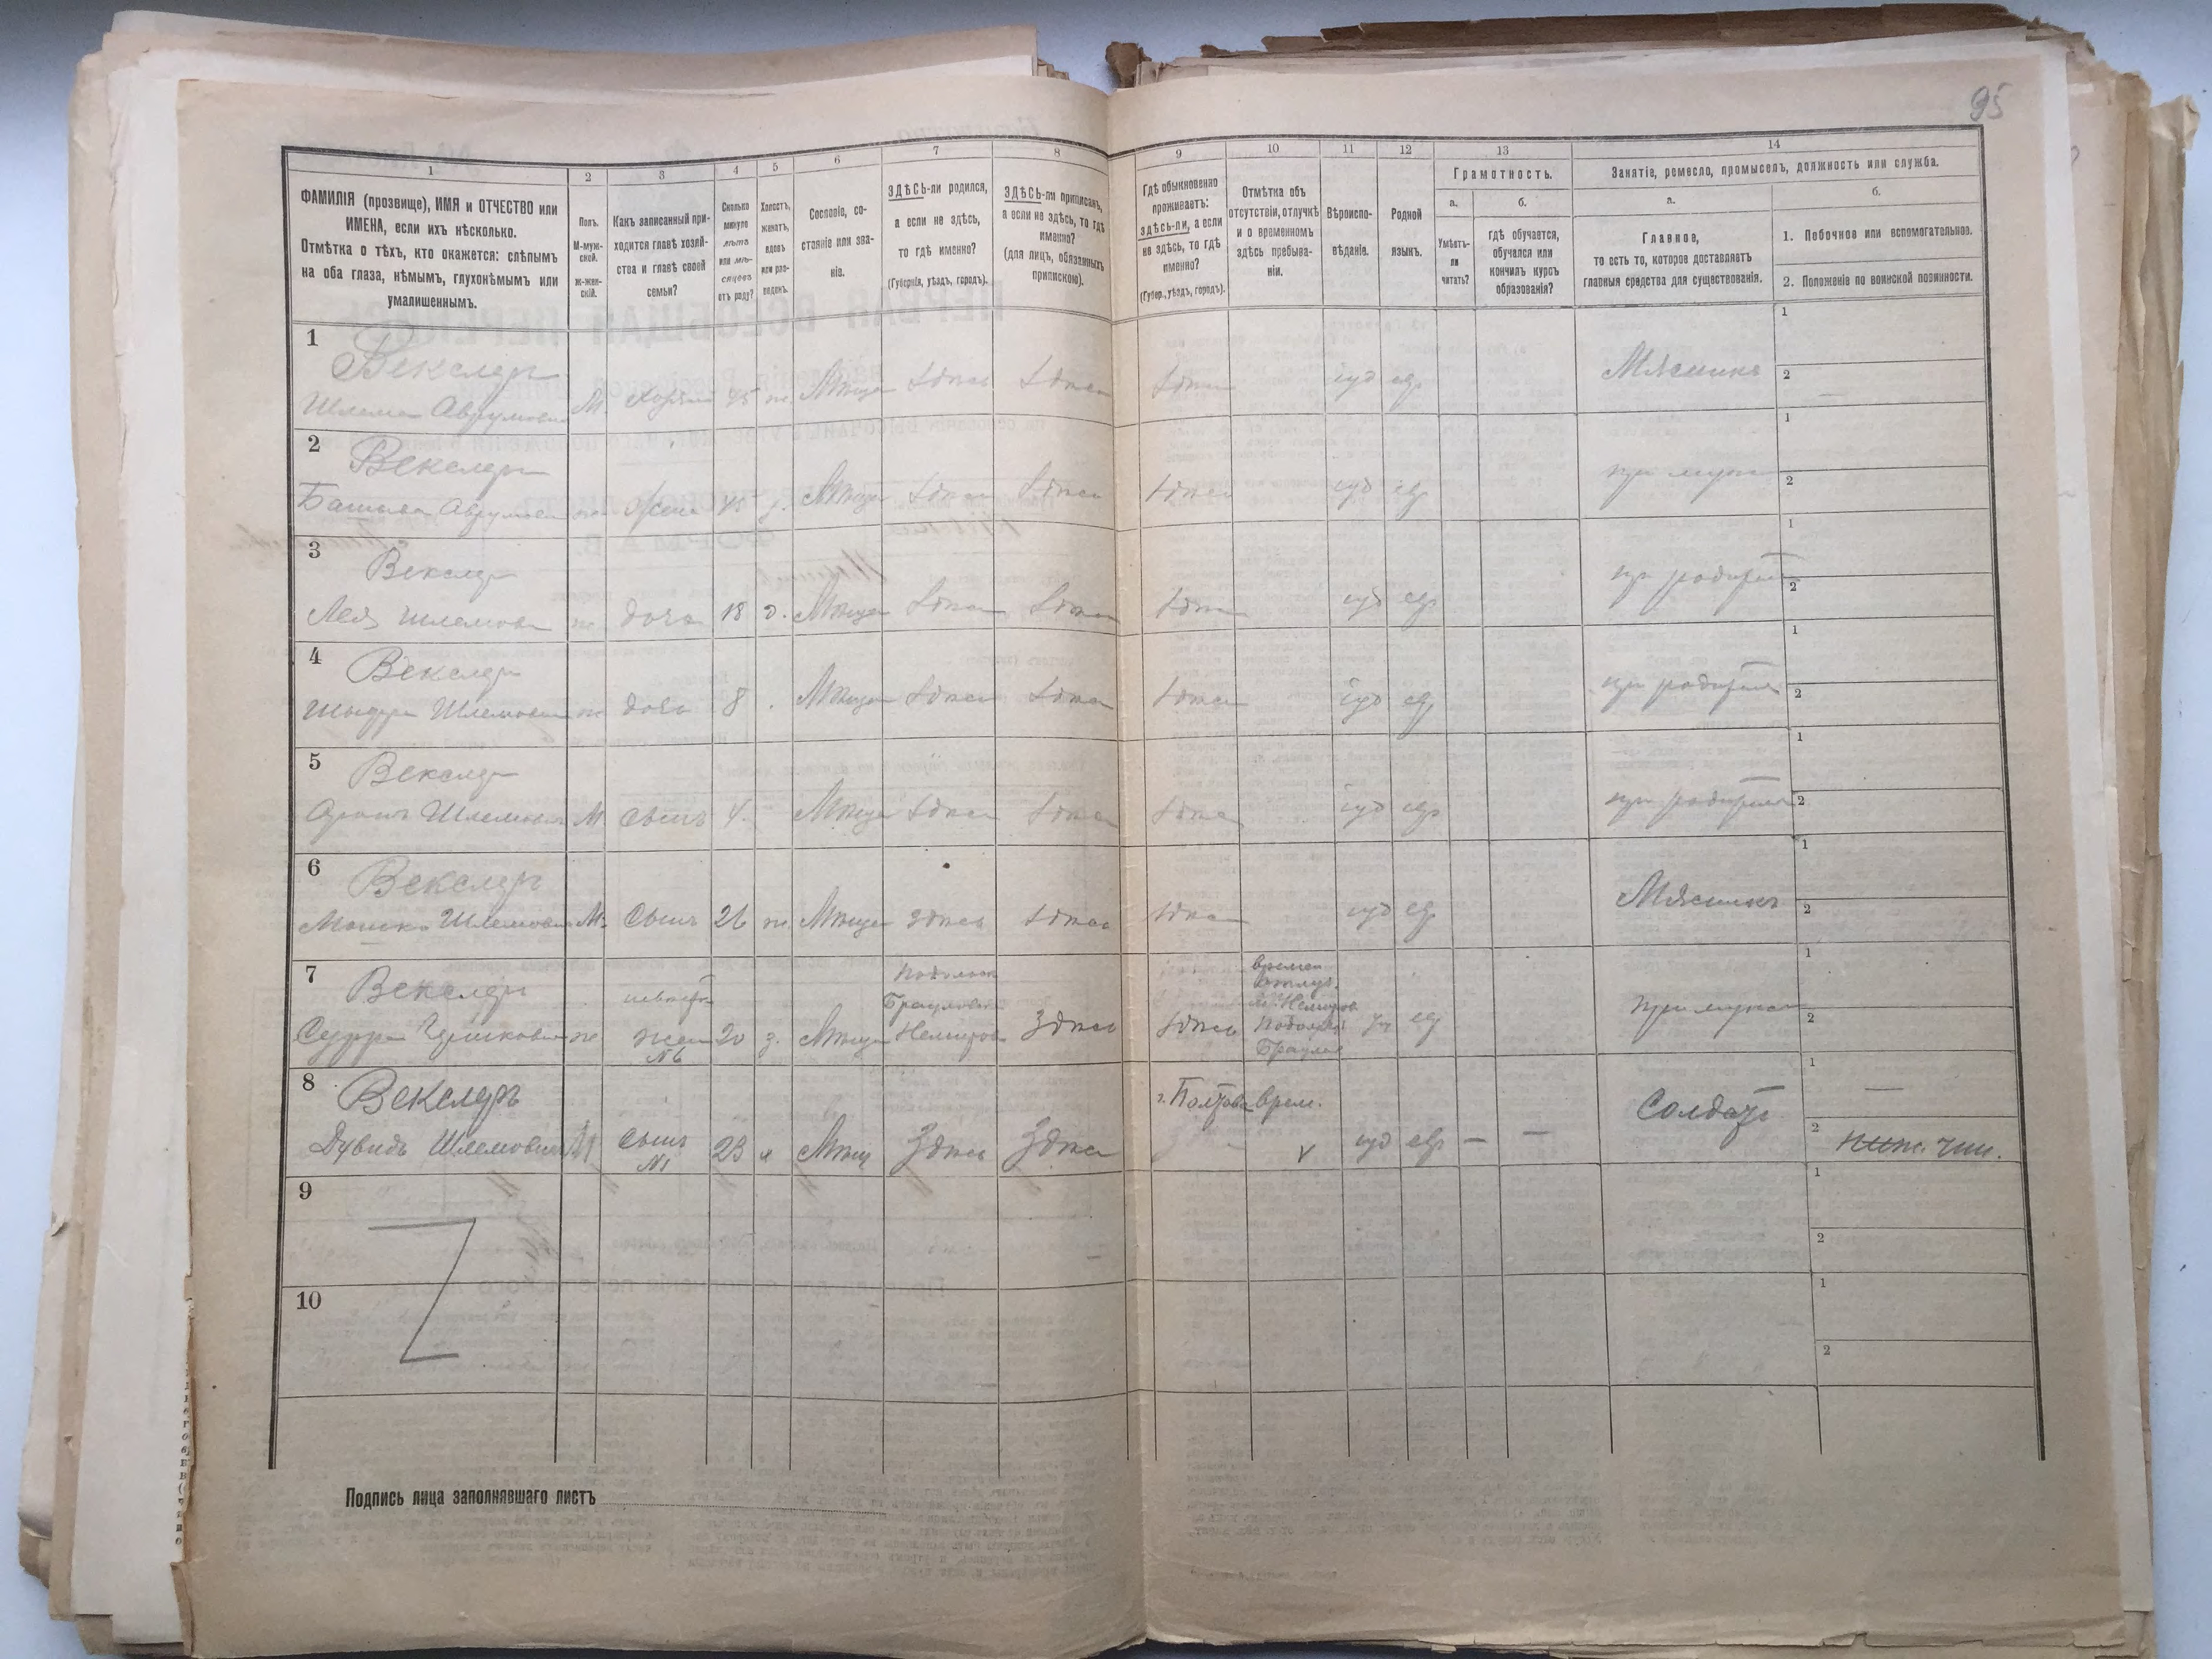 95
1
2
3
4
5
6
7
8
9
10
11
12
13
14
ФАМИЛІЯ (прозвище), ИМЯ и ОТЧЕСТВО или
ИМЕНА, если ихъ нѣсколько.
Отмѣтка о тѣхъ, кто окажется: слѣпымъ
на оба глаза, нѣмымъ, глухонѣмымъ или
умалишеннымъ.
Полъ.
М-муж-
ской.
ж-жен-
скій.
Какъ записанный при-
ходится главѣ хозяй-
ства и главѣ своей
семьи?
Сколько
минуло
лѣтъ
или мѣ-
сяцевъ
отъ роду?
Холостъ,
женатъ,
вдовъ
или раз-
веденъ.
Сословіе, со-
стояніе или зва-
ніе.
ЗДѢСЬ-ли родился,
а если не здѣсь,
то гдѣ именно?
(Губернія, уѣздъ, городъ).
ЗДѢСЬ-ли приписанъ,
а если не здѣсь, то гдѣ
именно?
(для лицъ, обязанныхъ
припискою).
Гдѣ обыкновенно
проживаетъ:
здѣсь-ли, а если
не здѣсь, то гдѣ
именно?
(Губер., уѣздъ, городъ).
Отмѣтка объ
отсутствіи, отлучкѣ
и о временномъ
здѣсь пребыва-
ніи.
Вѣроиспо-
вѣданіе.
Родной
языкъ.
Грамотность.
а.
Умѣетъ-
ли
читать?
б.
гдѣ обучается,
обучался или
кончилъ курсъ
образованія?
Занятіе, ремесло, промыселъ, должность или служба.
а.
Главное,
то есть то, которое доставляетъ
главныя средства для существованія.
б.
1. Побочное или вспомогательное.
2. Положеніе по воинской повинности.
1
Векслеръ
Шлема Аврумовъ М. Хозяинъ 45 ж. Мѣщан здѣсь здѣсь здѣсь іуд евр Мясникъ
1
2
2
Векслеръ
Аврумова ж жена 45 з. Мѣщан здѣсь здѣсь здѣсь іуд евр при мужѣ
1
2
3
Векслеръ
Лея Шлемова ж дочь 18 д. Мѣщан здѣсь здѣсь здѣсь іуд евр при родител
1
2
4
Векслеръ
Шлемова ж дочь 8 Мѣщан здѣсь здѣсь здѣсь іуд евр при родител
1
2
5
Векслеръ
Аронъ Шлемовъ М сынъ 4 Мѣщан здѣсь здѣсь здѣсь іуд евр при родител
1
2
6
Векслеръ
Мошко Шлемовъ М. сынъ 26 ж. Мѣщан здѣсь здѣсь здѣсь іуд евр Мясникъ
1
2
7
Векслеръ
невѣстк
жена
№6
ж 20 з. Мѣщан
Подольск
Брацлавск
Немировъ
здѣсь здѣсь
времен
отлуч.
Немировъ
Подольск
Брацлав
іуд евр при мужѣ
1
2
8
Векслеръ
Дувидъ Шлемовичъ М
сынъ
№1
23 х Мѣщ здѣсь здѣсь
г. Полтава врем.
іуд евр — — Солдатъ
1 —
2 ниж. чин.
9
1
2
10
1
2
Подпись лица заполнявшаго листъ